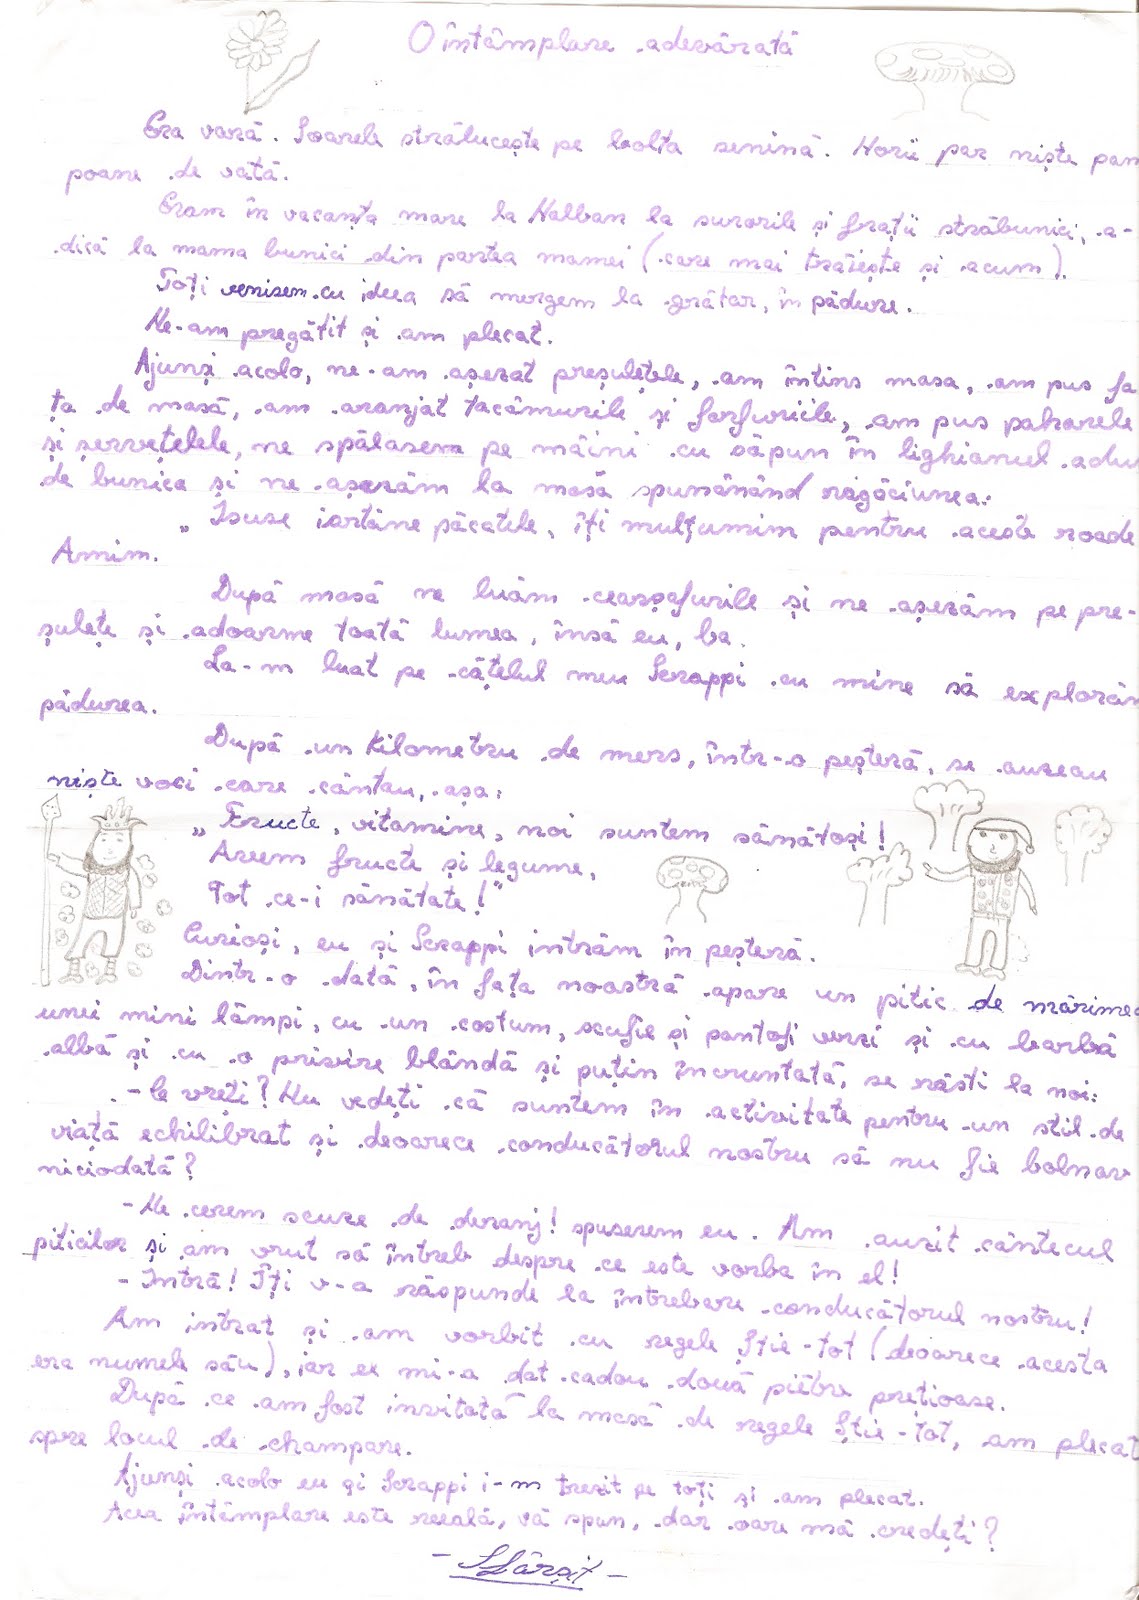 O întâmplare adevărată
Era vară. Soarele strălucește pe bolta senină. Norii par niște pam
poane de vată.
Eram în vacanța mare la Nalban la surorile și frații străbunici, a-
dică la mama bunici din partea mamei (care mai trăiește și acum).
Toți venisem cu ideea să mergem la grătar, în pădure.
Ne-am pregătit și am plecat.
Ajunși acolo, ne-am așezat preșulețele, am întins masa, am pus fa
ța de masă, am aranjat tacâmurile și farfuriile, am pus paharele
și șervețelele, ne spălasem pe mâini cu săpun în lighianul adus
de bunica și ne așezăm la masă spunânând rugăciunea:
„Isuse iartăne păcatele, îți mulțumim pentru aceste roade
Amim.
După masă ne luăm cearșafurile și ne așezăm pe pre-
șulețe și adoarme toată lumea, însă eu, ba.
La-m luat pe cățelul meu Scrappi cu mine să explorăm
pădurea.
După un kilometru de mers, într-o peșteră, se auzeau
niște voci care cântau, așa:
„Fructe, vitamine, noi suntem sănătoși!
Avem fructe și legume,
Tot ce-i sănătate!"
Curioși, eu și Scrappi intrăm în peșteră.
Dintr-o dată, în fața noastră apare un pitic de mărimea
unei mini lămpi, cu un costum, scufie și pantofi verzi și cu barbă
albă și cu o privire blândă și puțin încruntată, se răsti la noi:
- Ce vreți? Nu vedeți că suntem în activitate pentru un stil de
viață echilibrat și deoarece conducătorul nostru să nu fie bolnav
niciodată?
- Ne cerem scuze de deranj! spuserem eu. Am auzit cântecul
piticilor și am vrut să întreb despre ce este vorba în el!
- Intră! Îți v-a răspunde la întrebare conducătorul nostru!
Am intrat și am vorbit cu regele Știe-tot (deoarece acesta
era numele său), iar el mi-a dat cadou două pietre prețioase.
După ce am fost invitată la masă de regele Știe-tot, am plecat
spre locul de champare.
Ajunși acolo eu și Scrappi i-m trezit pe toți și am plecat.
Acea întâmplare este reeală, vă spun, dar oare mă credeți?
- Sfârșit -